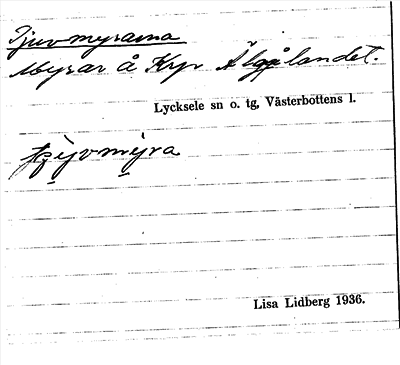 Tjuvmyrarna
Myrar å Krp Älgålandet.
Lycksele sn o. tg, Västerbottens l.
Lisa Lidberg 1936.